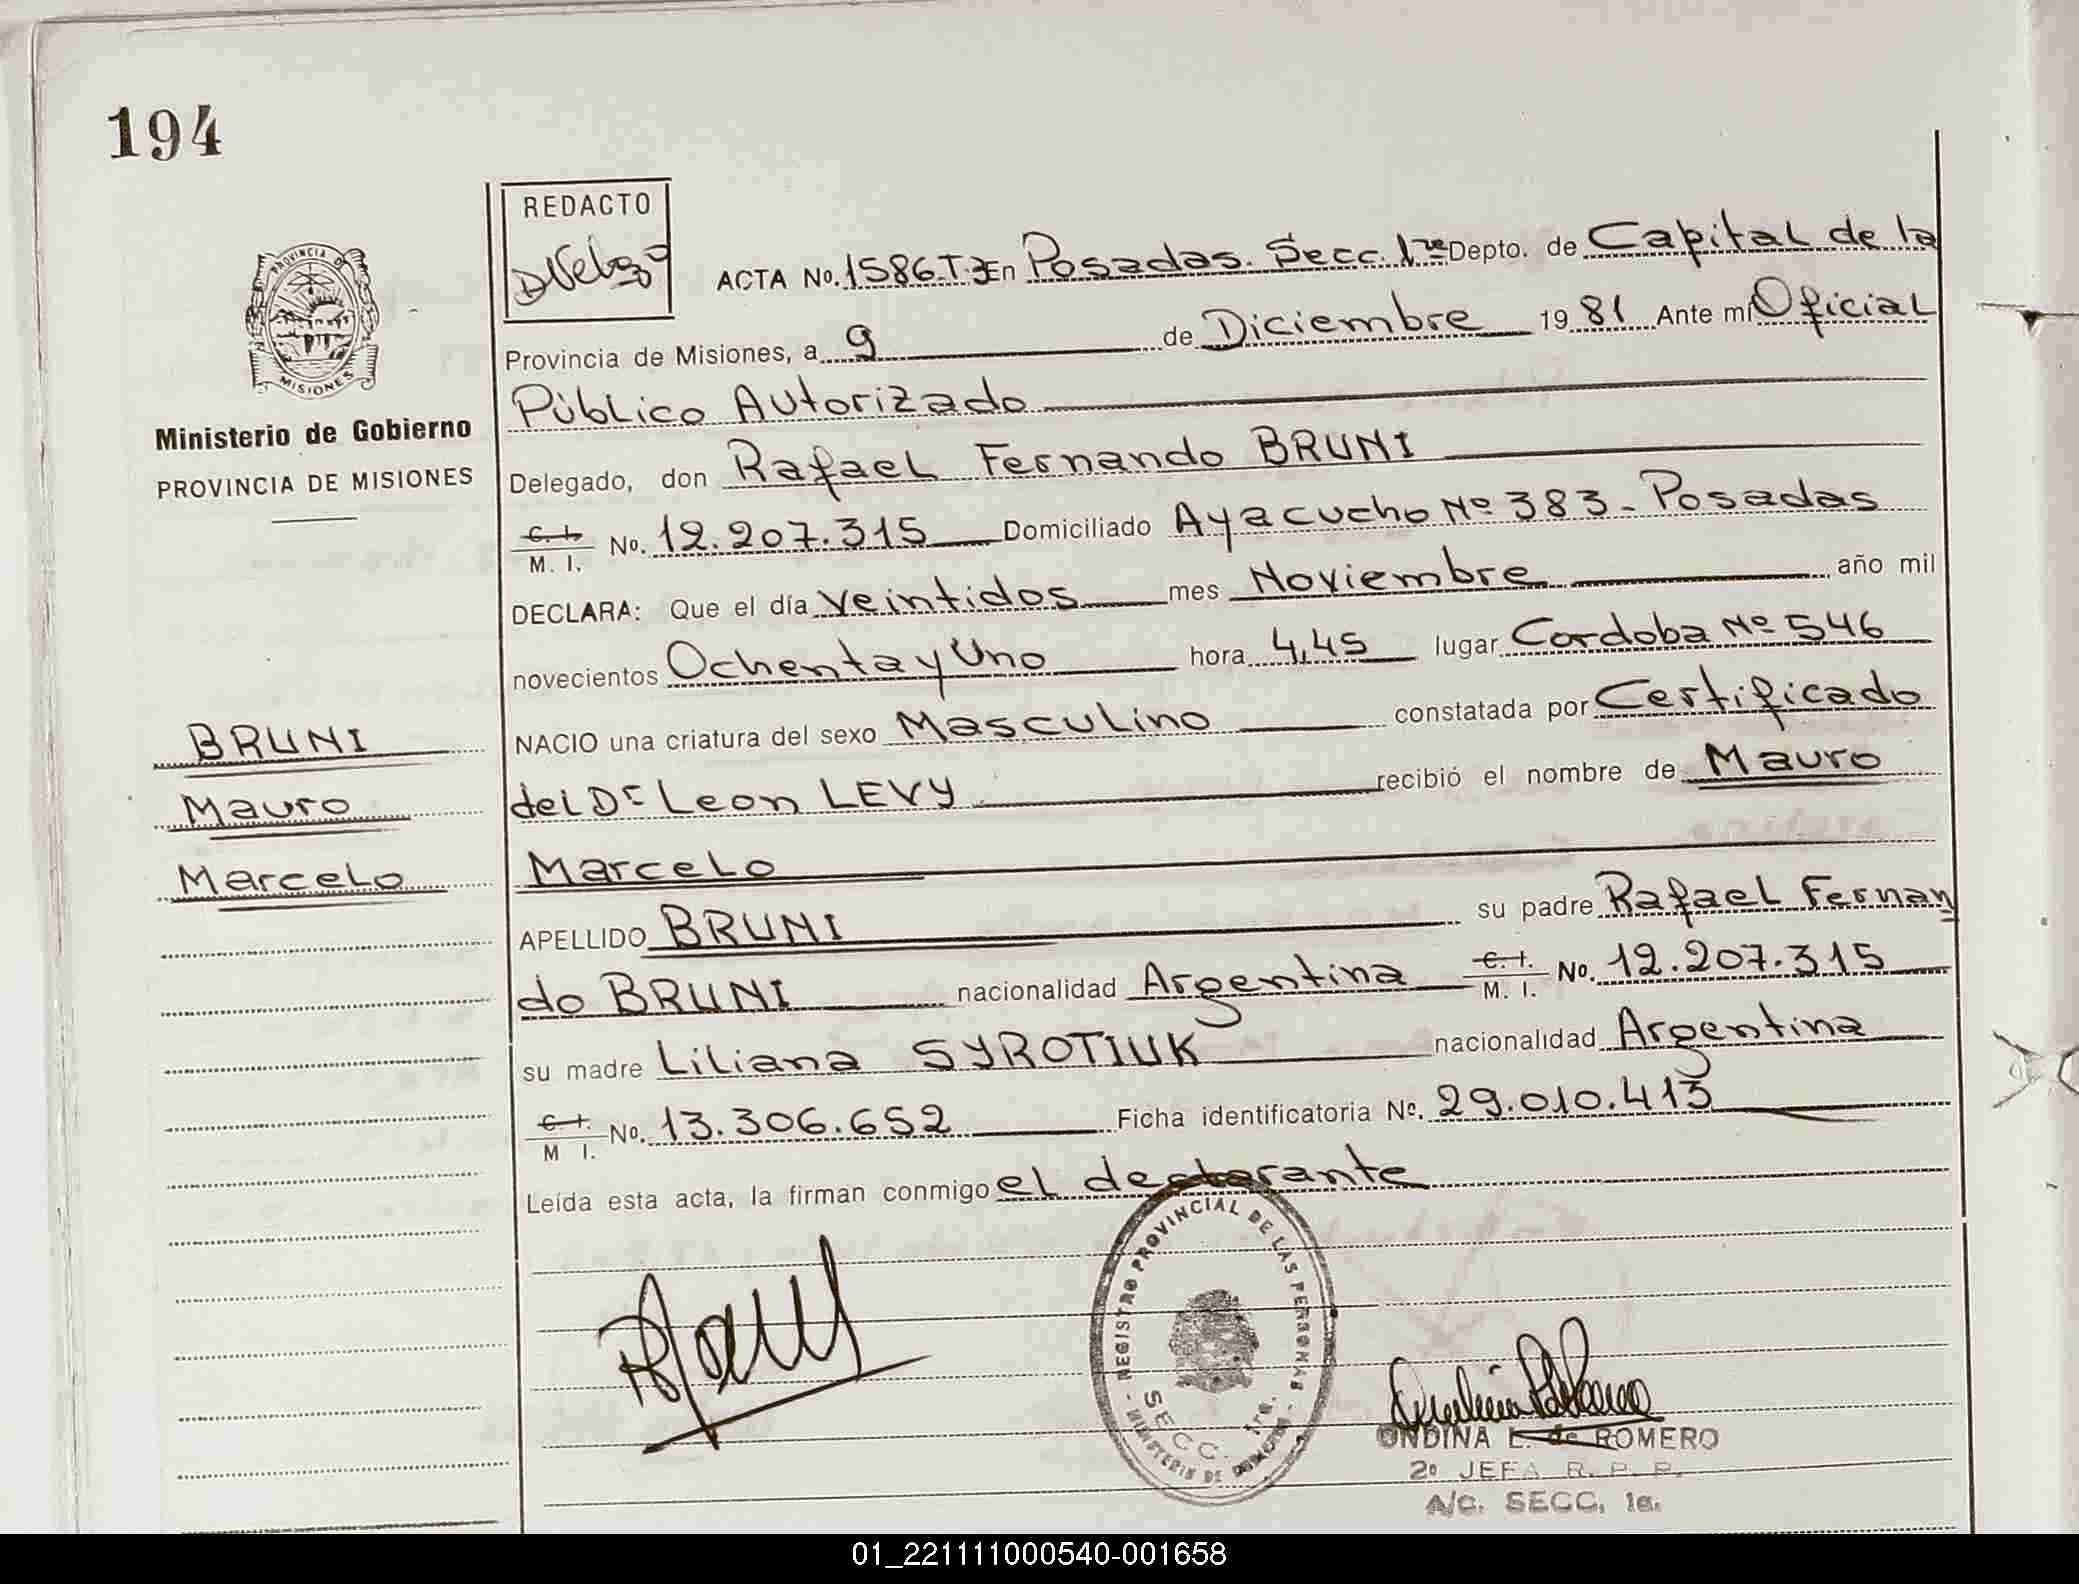 194
REDACTO
PROVINCIA DE
MISIONES
Ministerio de Gobierno
PROVINCIA DE MISIONES
ACTA No. 1586.T.3 En Posadas. Secc. 1ra Depto. de Capital de la
Provincia de Misiones, a 9 de Diciembre 1981 Ante mí Oficial
Público Autorizado
Delegado, don Rafael Fernando BRUNI
C. I. M. I. No. 12.207.315 Domiciliado Ayacucho Nº 383 - Posadas
DECLARA: Que el día veintidos mes Noviembre año mil
novecientos Ochenta y Uno hora 4,45 lugar Cordoba Nº 546
NACIO una criatura del sexo Masculino constatada por Certificado
del Dr Leon LEVY recibió el nombre de Mauro
Marcelo
APELLIDO BRUNI su padre Rafael Fernan
do BRUNI nacionalidad Argentina C. I. M. I. No. 12.207.315
su madre Liliana SYROTIUK nacionalidad Argentina
C. I. M I. No. 13.306.652 Ficha identificatoria No. 29.010.413
Leída esta acta, la firman conmigo el declarante
BRUNI
Mauro
Marcelo
REGISTRO PROVINCIAL DE LAS PERSONAS
SECC. 1ra.
MINISTERIO DE GOBIERNO
ONDINA E. de ROMERO
2º JEFA R. P. P.
A/C. SECC, 1a.
01_221111000540-001658